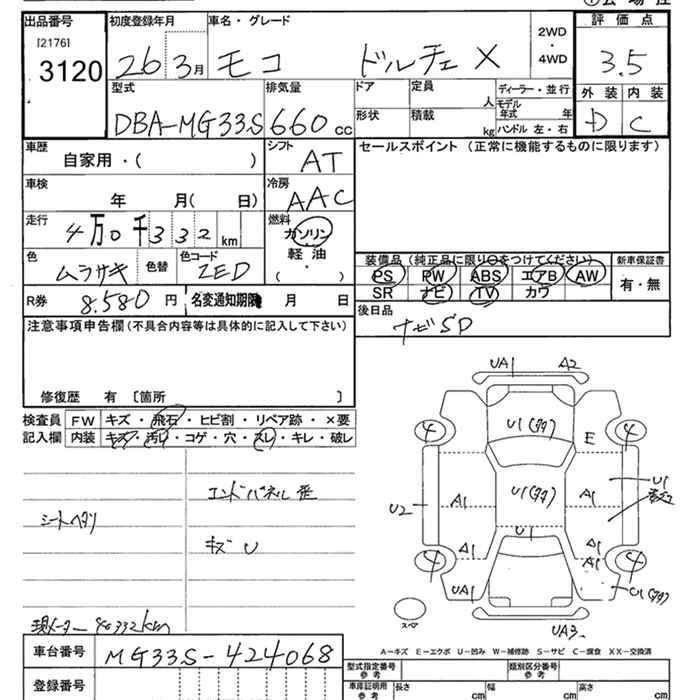 出品番号 初度登録年月 車名・グレード 2WD・4WD 評価点
[2176]
3120 26 3月 モコ ドルチェ X 3.5
型式 排気量 ドア 定員 人 ディーラー・並行 外装 内装
DBA-MG33S 660cc 形状 積載 kg モデル年式 年 ハンドル 左・右 D C
車歴 自家用・( ) シフト AT セールスポイント (正常に機能するものに限ります)
車検 年 月( 日) 冷房 AAC
走行 4万0千332km 燃料 ガソリン 軽油 ・ ( )
色 ムラサキ 色替 色コード ZED
装備品 (純正品に限り○をつけてください) 新車保証書
PS PW ABS エアB AW 有・無
SR ナビ TV カワ
R券 8,580円 名変通知期限 月 日 後日品
ナビSD
注意事項申告欄(不具合内容等は具体的に記入して下さい)
修復歴 有 〔箇所 〕
検査員 FW キズ・飛石・ヒビ割・リペア跡・×要
記入欄 内装 キズ・汚れ・コゲ・穴・スレ・キレ・破レ
エンドパネル 歪
シートヘタリ
キズ U
現メーター 40332km
UA1 A2
4 U1(タタ) E 4
U2 A1 U1(タタ) A1 U1
U1
A1 A1
4 A1 4
UA1 U1(タタ)
スペア
UA3
A-キズ E-エクボ U-凹み W-補修跡 S-サビ C-腐食 XX-交換済
車台番号 MG33S-424068
登録番号
型式指定番号 参考 類別区分番号 参考
車庫証明用 参考 長さ cm 幅 cm 高さ cm